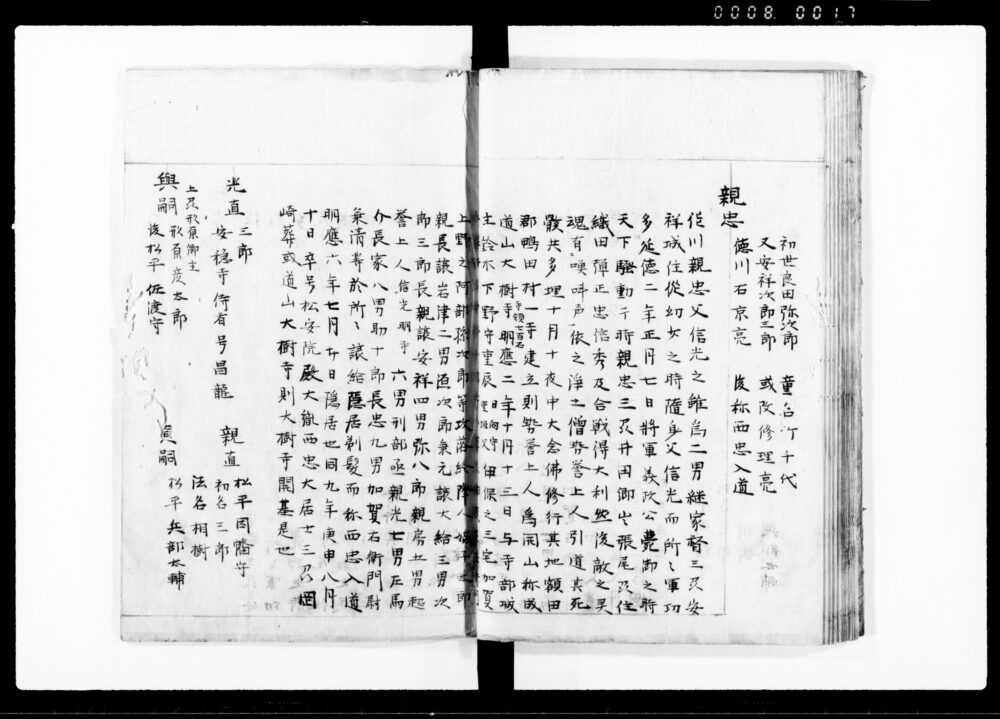 0008 0017
親忠
初世良田弥次郎 童名竹千代
又安祥次郎三郎 或改修理亮
徳川右京亮 後称西忠入道
佐川親忠父信光之雖為二男継家督三刕安
祥城住従幼少之時随身父信光而所〻軍功
多延徳二年正月七日将軍義政公薨御之時
天下騒動于時親忠三刕井田郷与張尾刕住
織田弾正忠信秀及合戦得大利然後敵之兵
魂有喚叫声依之浄土僧勢誉上人引道其死
骸共多理十月十夜中大念佛修行其地額田
郡鴨田村一寺建立則勢誉上人為開山称成
道山大樹寺寺領七百石明應二年十月十三日与寺部城
主鈴木下野守重辰伊保之三宅加賀
上野之阿部孫次郎等攻落終降人嫡子太郎
親長譲岩津二男源次郎乗元譲大給三男次
郎三郎長親譲安祥四男弥八郎親房五男超
誉上人信光明寺六男刑部丞親光七男左馬
介長家八男助十郎長忠九男加賀右衛門尉
乗清等於所〻譲給隠居剃髪而称西忠入道
明應六年七月廿日隠居也同九年庚申八月
十日卒号松安院殿大胤西忠大居士三刕岡
崎葬或道山大樹寺則大樹寺開基是也
光直 三郎
安穏寺侍者号昌龍
親直 松平因幡守
初名三郎
法名相樹
上刕形原御主
與嗣 形原彦太郎
後松平佐渡守
貞嗣 松平兵部太輔